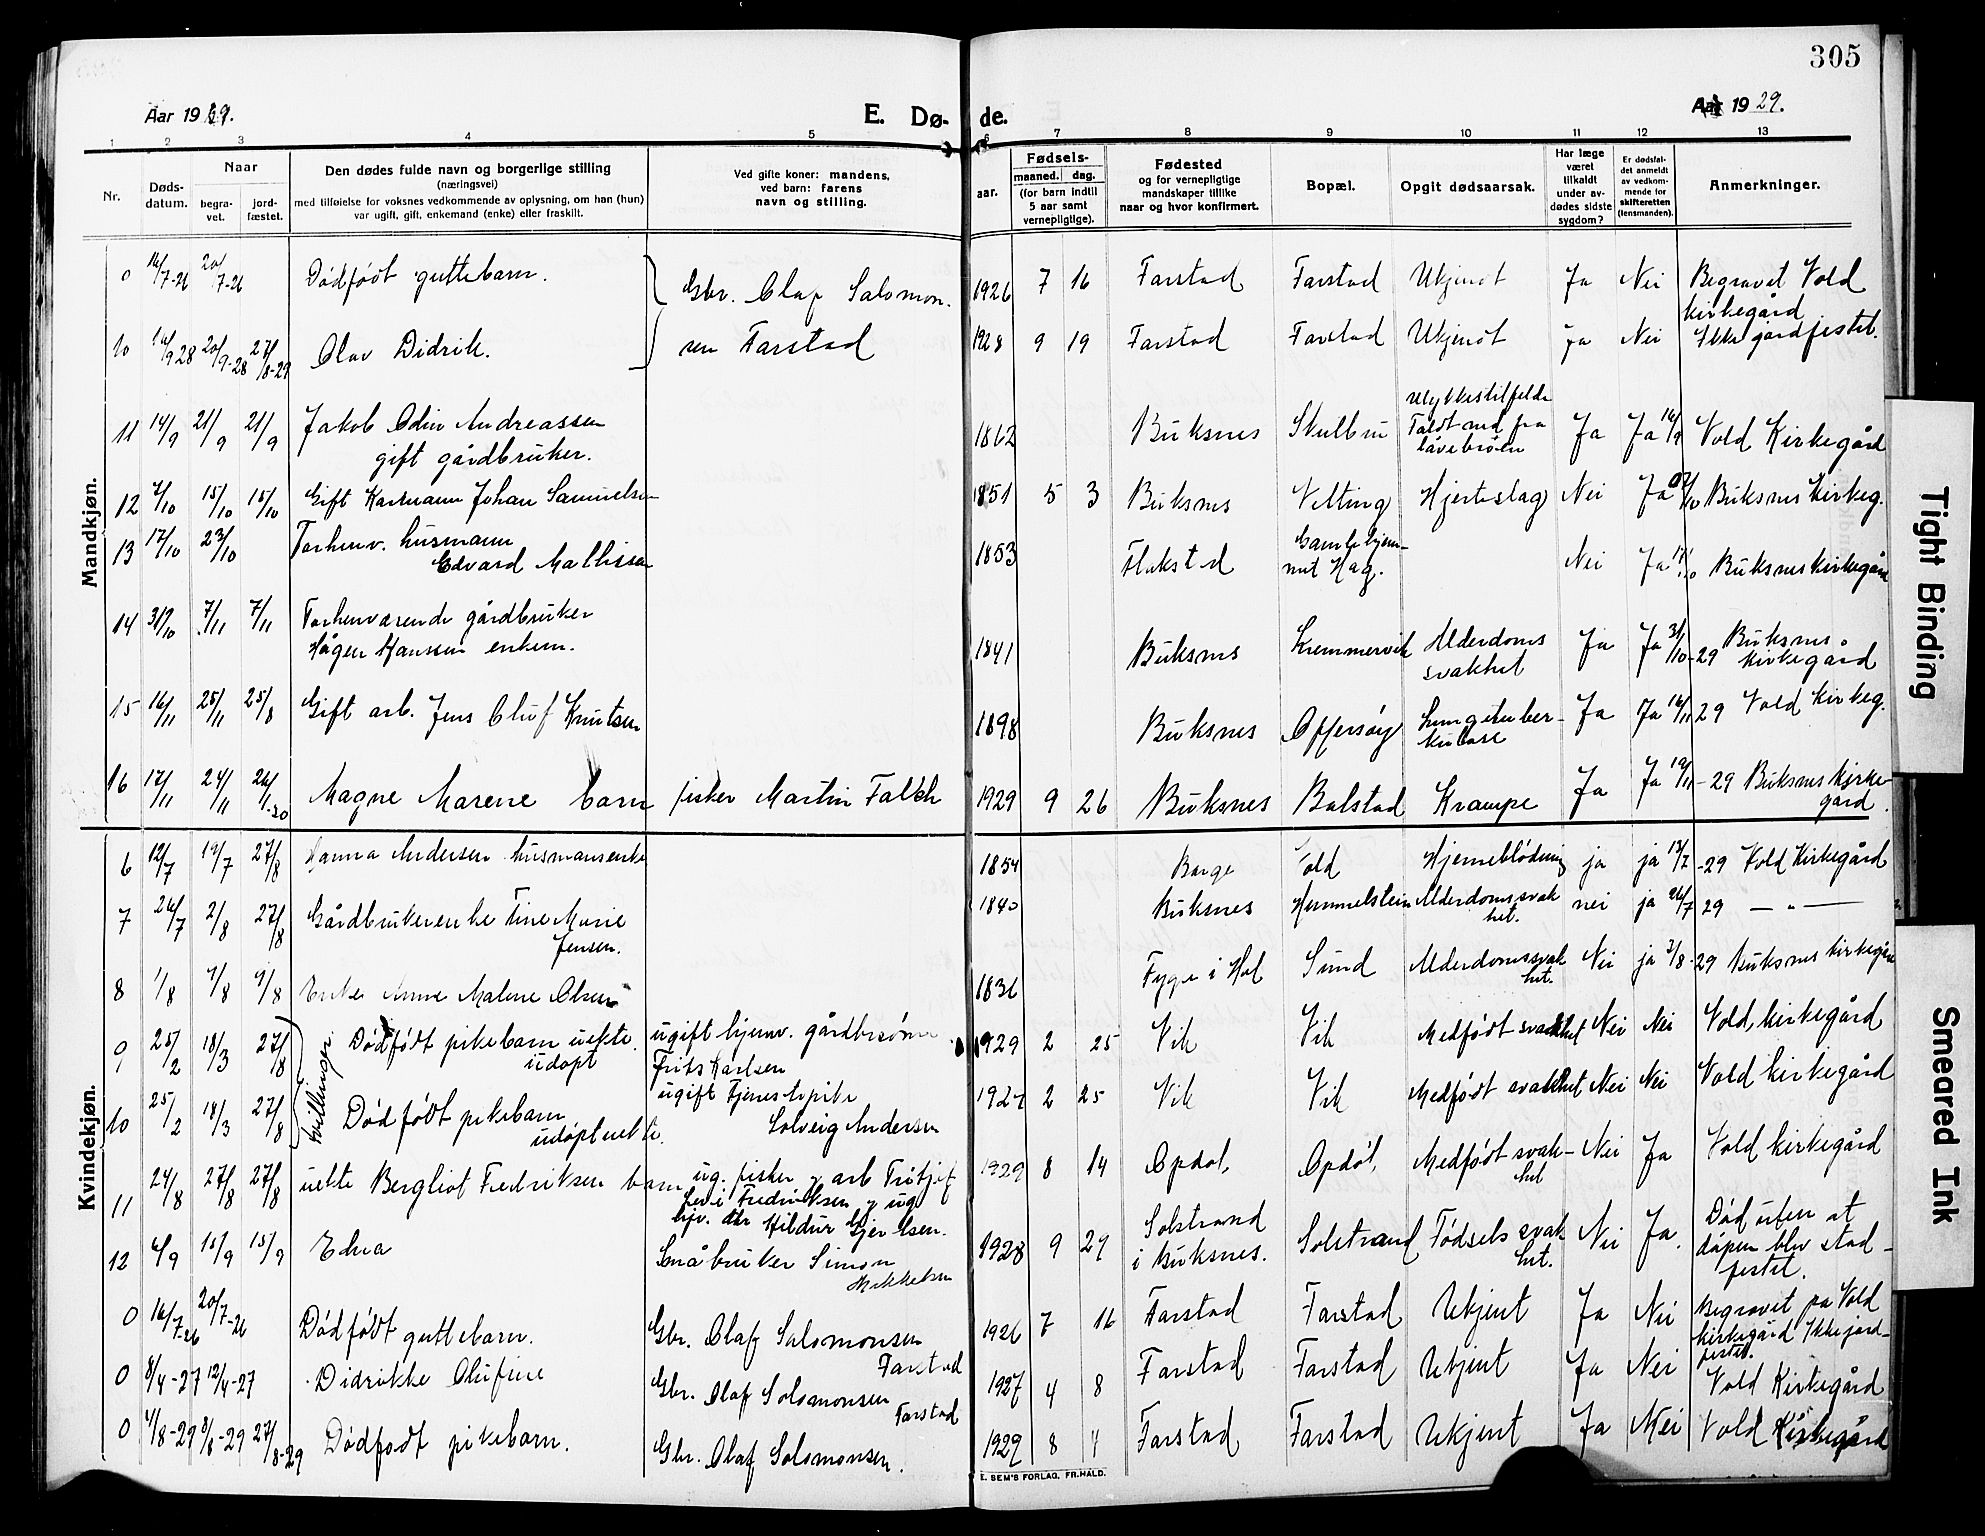 305
Aar 1929.
E. Dø-
de.
Aar 1929.
1 2 3 4 5 6 7 8 9 10 11 12 13
Nr.
Døds-
datum.
Naar
begra-
vet.
jord-
fæstet.
Den dødes fulde navn og borgerlige stilling
(næringsvei)
med tilføielse for voksnes vedkommende av oplysning, om han (hun)
var ugift, gift, enkemand (enke) eller fraskilt.
Ved gifte koner: mandens,
ved barn: farens
navn og stilling.
Fødsels-
aar.
maaned.
dag.
(for barn indtil
5 aar samt
vernepligtige).
Fødested
og for vernepligtige
mandskaper tillike
naar og hvor konfirmert.
Bopæl.
Opgit dødsaarsak.
Har læge
været
tilkaldt
under av-
dødes sidste
sygdom?
Er dødsfal-
det anmeldt
av vedkom-
mende for
skifteretten
(lensmanden).
Anmerkninger.
Mandkjøn.
0 16/7-26 20/7-26 Dødfødt guttebarn. Gbr. Olaf Salomon- 1926 7 16 Farstad Farstad Ukjent Ja Nei Begravet Vold
kirkegård
10 16/9 28 20/9-28 27/8-29 Olav Didrik. sen Farstad 1928 9 19 Farstad Farstad Ukjent Ja Nei Ikke jordfestet.
11 14/9 21/9 21/9 Jakob Odin Andreassen
gift gårdbruker. 1862 Buksnes Skulbru Ulykkestilfelde
Faldt ned fra
låvebroen Ja Ja 16/9 Vold Kirkegård
12 7/10 15/10 15/10 Gift Karmann Johan Samuelsen 1851 5 3 Buksnes Vetting Hjerteslag Nei Ja /10 Buksnes Kirkeg.
13 17/10 23/10 Forhenv. husmann
Edvard Mathissen 1853 Flakstad Gamlehjem-
met Hag. Nei Ja 17/10 Buksnes kirkegård
14 31/10 7/11 7/11 Forhenværende gårdbruker
Hågen Hanssen enkem. 1841 Buksnes Kremmervik Alderdoms
svakhet Ja Ja 31/10-29 Buksnes
kirkegård
15 16/11 25/11 25/8 Gift arb. Jens Oluf Knutsen 1898 Buksnes Offersøy Lungetuber-
kulose Ja Ja 16/11 29 Vold Kirkeg.
16 17/11 24/11 26/1-30 Magne Marene barn fisker Martin Falch 1929 9 26 Buksnes Balstad Krampe Ja Ja 19/11-29 Buksnes kirke-
gård.
Kvindekjøn.
6 12/7 19/7 27/8 Hanna Andersen husmansenke 1854 Borge Vold Hjerneblødning ja ja 13/7-29 Vold Kirkegård
7 26/7 2/8 27/8 Gårdbrukerenke Tine Marie
Jensen. 1840 Buksnes Hemmelstein Alderdomssvak
het. nei ja 26/7 29 — " —
8 1/8 9/8 9/8 Enke Anne Malene Olsen 1836 Fygje i Hol Sund Alderdomssvak
het. Nei ja 3/8-29 Buksnes kirkegård
tvillinger
9 25/2 18/3 27/8 Dødfødt pikebarn uekte.
udøpt ugift hjemv. gårdbrsønn
Frits Karlsen 1929 2 25 Vik Vik Medfødt svakhet Nei Nei Vold kirkegård
10 25/2 18/3 27/8 Dødfødt pikebarn
udøpt uekte. ugift Tjenestepike
Solveig Andersen 1929 2 25 Vik Vik Medfødt svakhet Nei Nei Vold kirkegård
11 24/8 27/8 27/8 uekte Bergliot Fredriksen barn ug. fisker og arb Fritjof
Levi Fredriksen og ug.
hjv. dtr Hildur Gjertsen. 1929 8 14 Opdøl, Opdøl, Medfødt svak-
het Nei Ja Vold kirkegård
12 6/9 15/9 15/9 Edna Småbruker Simon
Mikkelsen 1928 9 27 Solstrand
i Buksnes. Solstrand Fødsels svak
het. Nei Ja. Død uten at
dåpen blev stad-
festet.
0 16/7-26 20/7-26 Dødfødt guttebarn. Gbr. Olaf Salomonsen
Farstad 1926 7 16 Farstad Farstad Ukjent Ja Nei Begravet på Vold
kirkegård Ikke jord-
festet.
0 8/4-27 12/4-27 Didrikke Olufine Gbr. Olaf Solomonsen
Farstad 1927 4 8 Farstad Farstad Ukjent Ja Nei Vold Kirkegård
0 4/8-29 8/8-29 27/8-29 Dødfødt pikebarn. Gbr. Olaf Solomonsen. 1929 8 4 Farstad Farstad Ukjent Ja Nei Vold Kirkegård
E. SEM'S FORLAG, FR.HALD.
Tight Binding
Smeared Ink